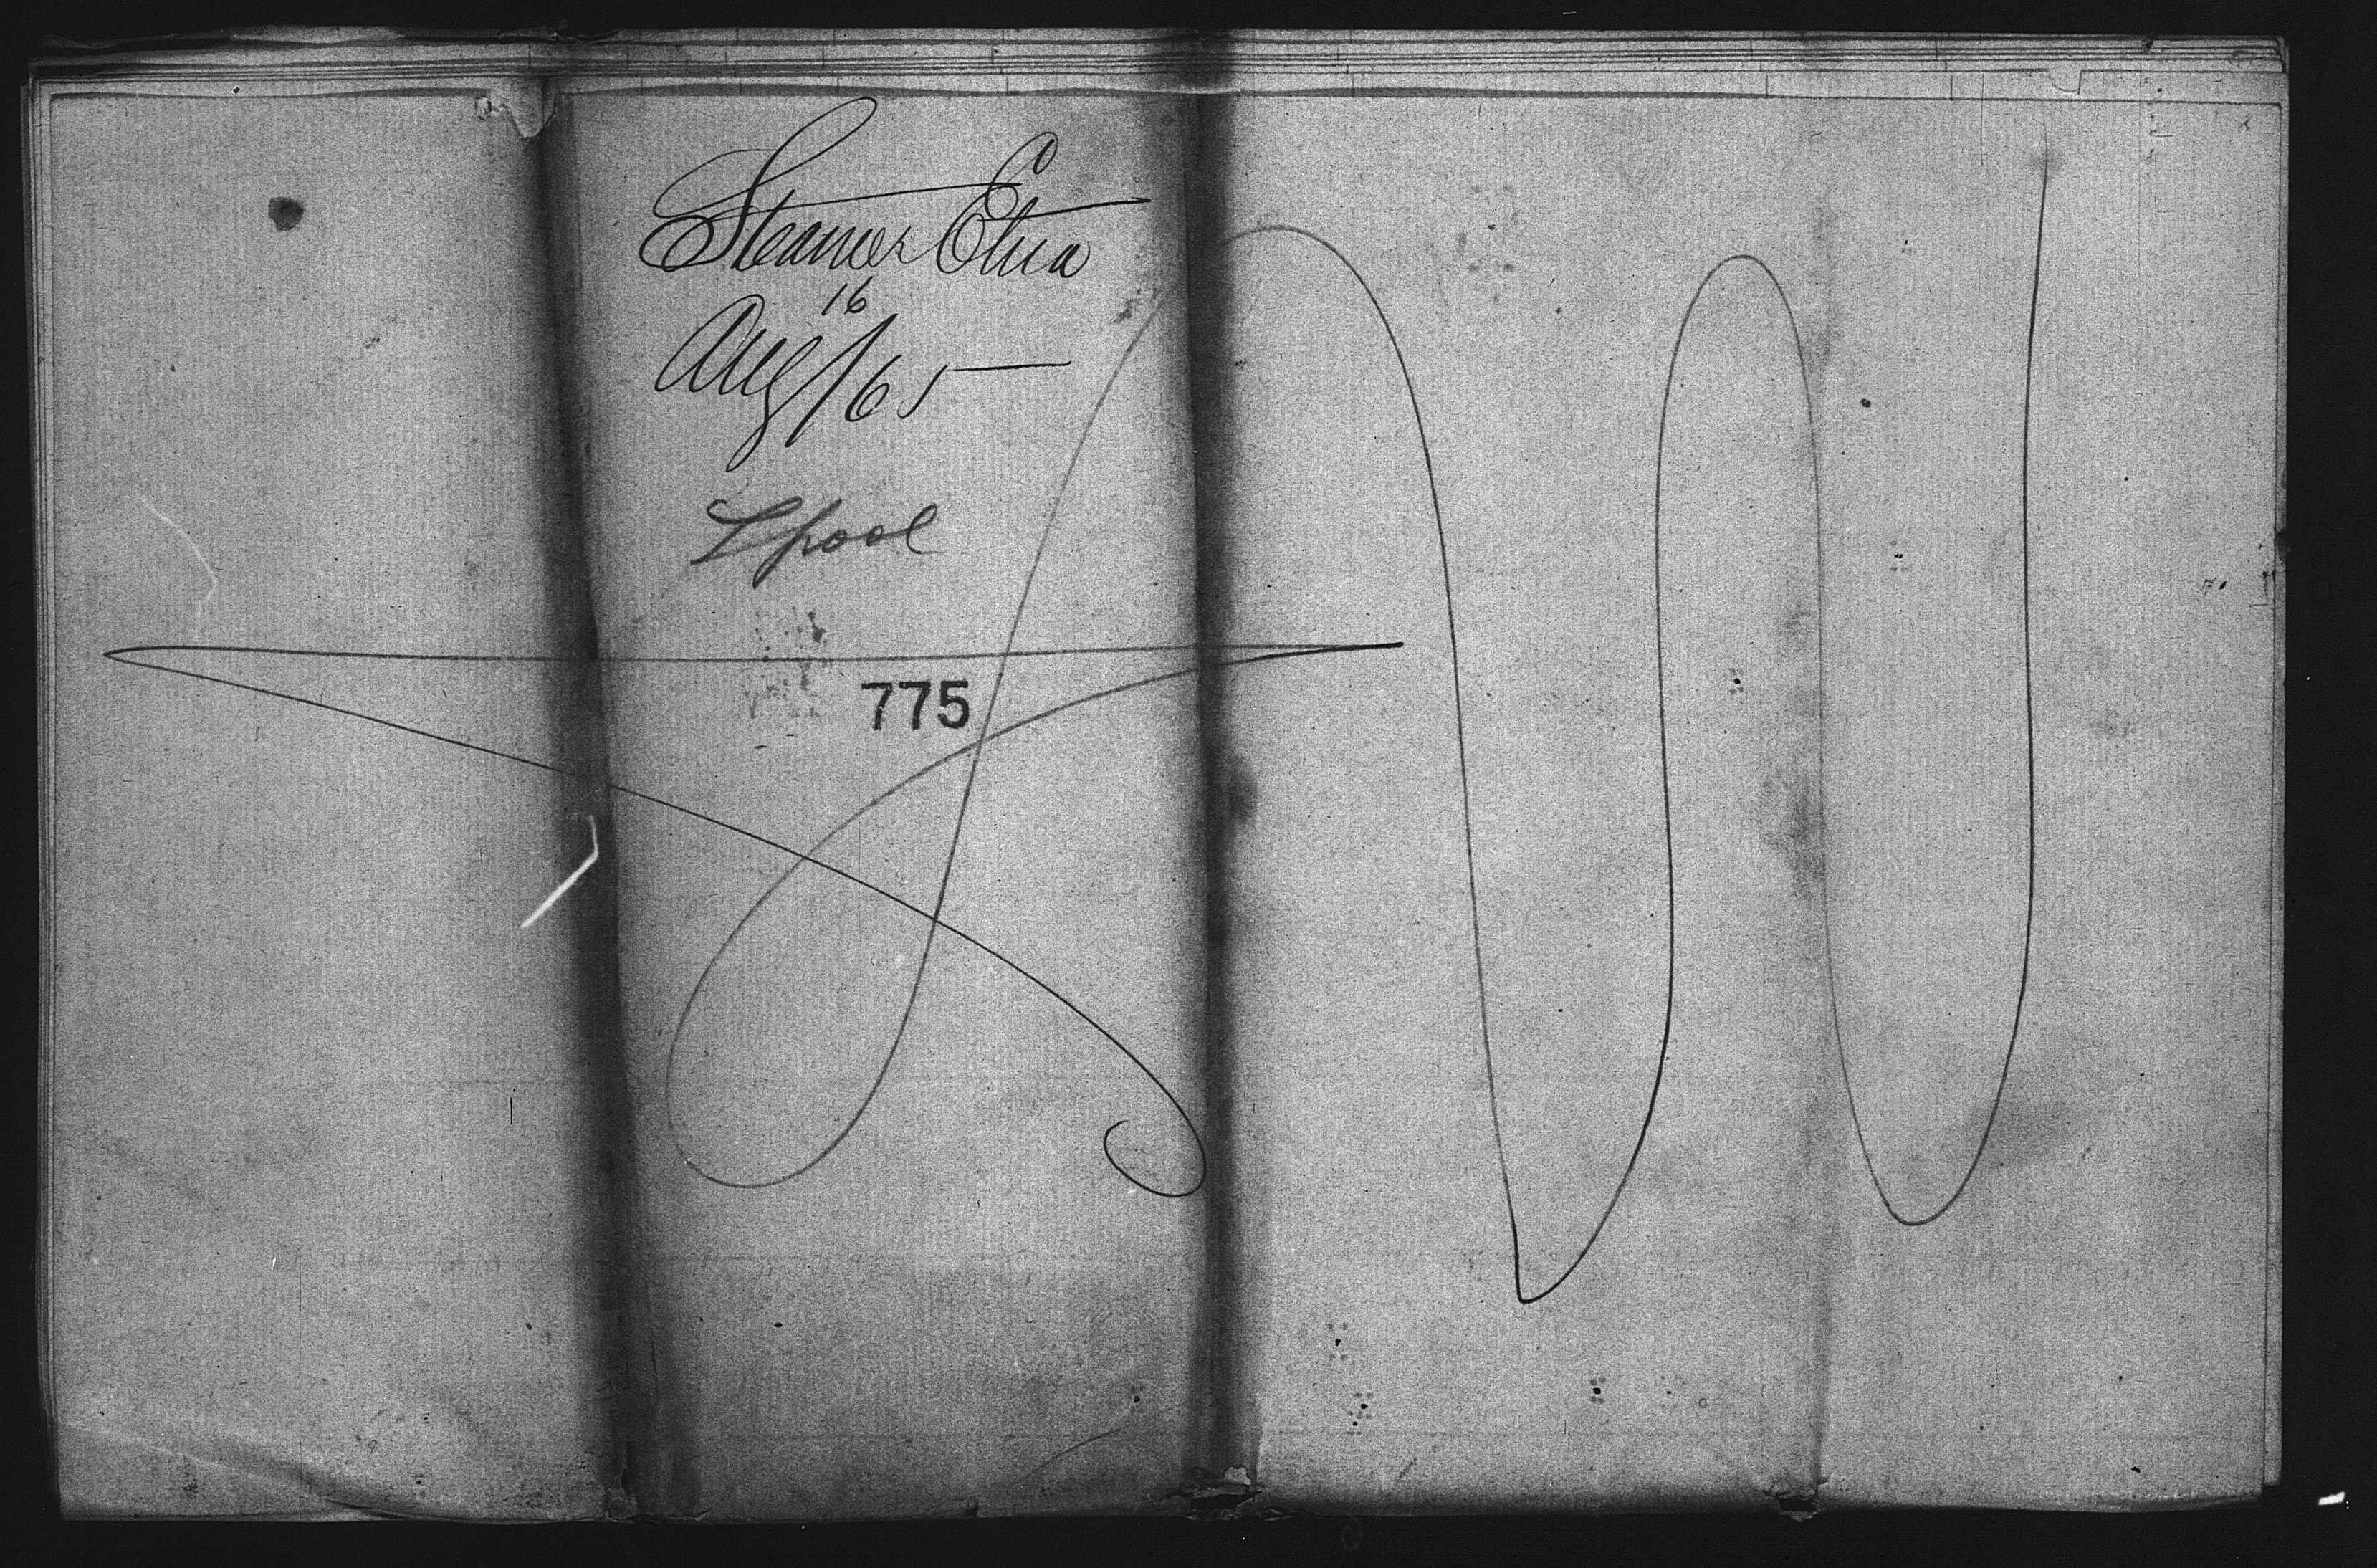 Steamer Etna
16
Aug/65
Lpool
775